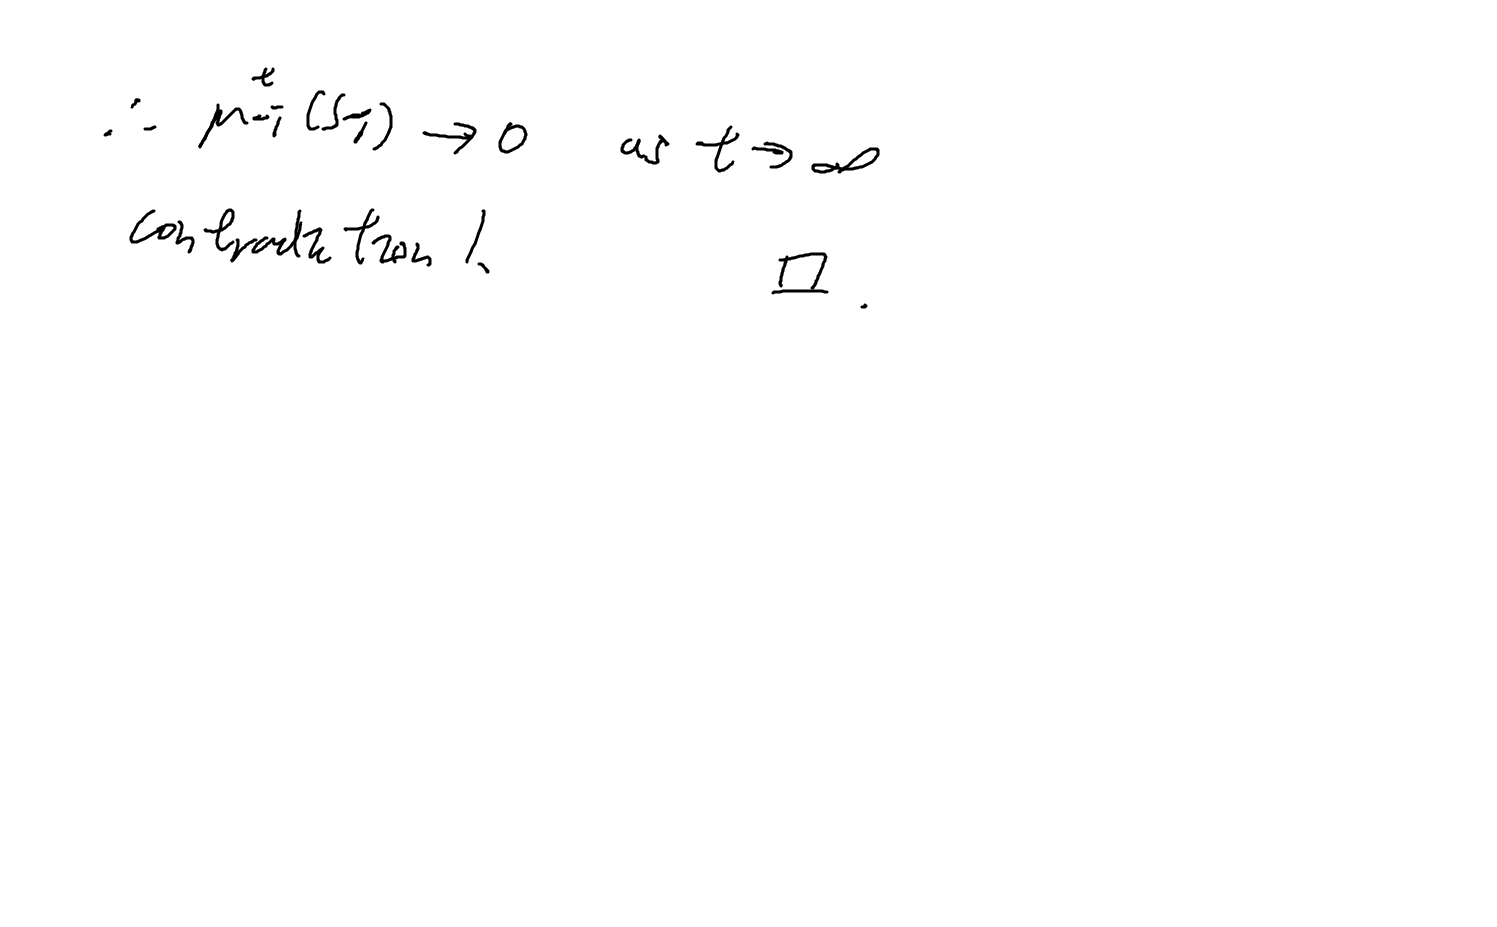 ∴ μ₋ᵢᵗ(S₋ᵢ) → 0 as t → ∞
contradiction!
□.